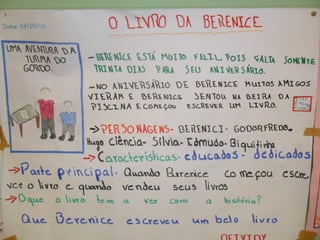 O LIVRO DA BERENICE
UMA AVENTURA DA
TURMA DO
GORDO.
- BERENICE ESTÁ MUITO FELIZ, POIS FALTA SOMENTE
TRINTA DIAS PARA SEU ANIVERSÁRIO.
- NO ANIVERSÁRIO DE BERENICE MUITOS AMIGOS
VIERAM E BERENICE SENTOU NA BEIRA DA
PISCINA E COMEÇOU ESCREVER UM LIVRO.
→ PERSONAGENS- BERENICI- GODORFREDO-
Hugo Clência- Silvia- Edmudo- Biquinho
→ Características- educados- dedicados
→ Parte principal- Quando Berenice começou escre-
ver o livro e quando vendeu seus livros
→ O que o livro tem a ver com a história?
Que Berenice escreveu um belo livro